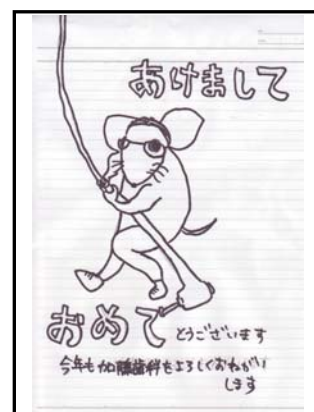 あけまして
おめで とうございます
今年も加藤歯科をよろしくおねがい
します